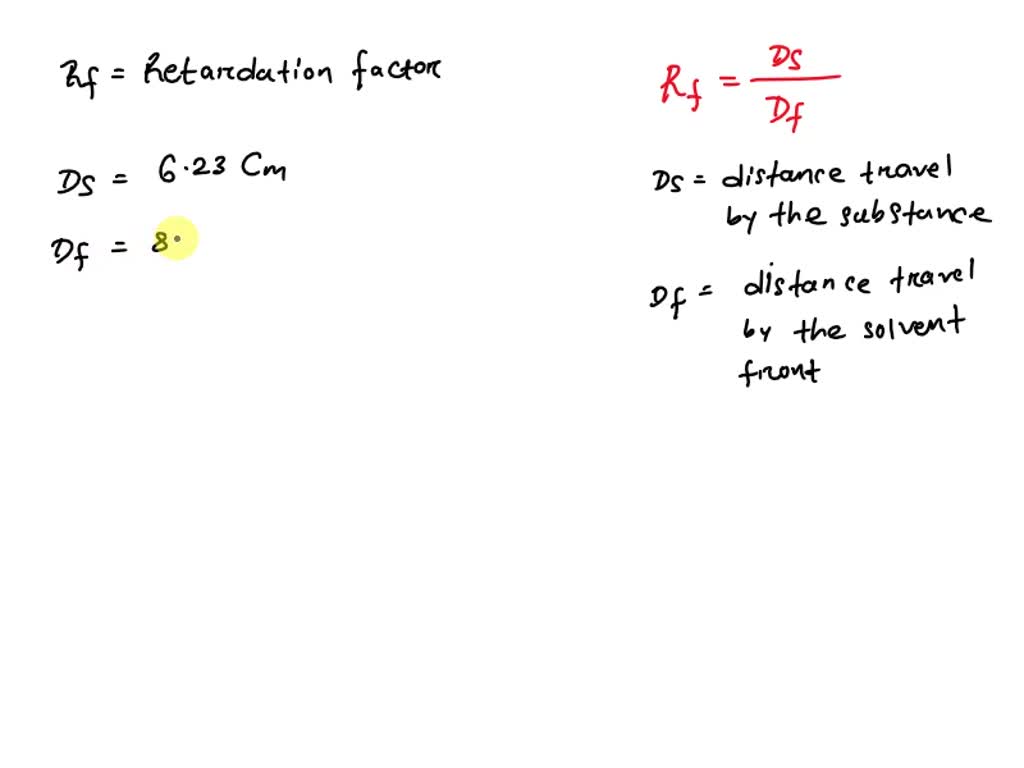 Rf = Retardation factor
Ds = 6.23 Cm
Df = 8.
Rf = Ds / Df
Ds = distance travel
by the substance
Df = distance travel
by the solvent
front